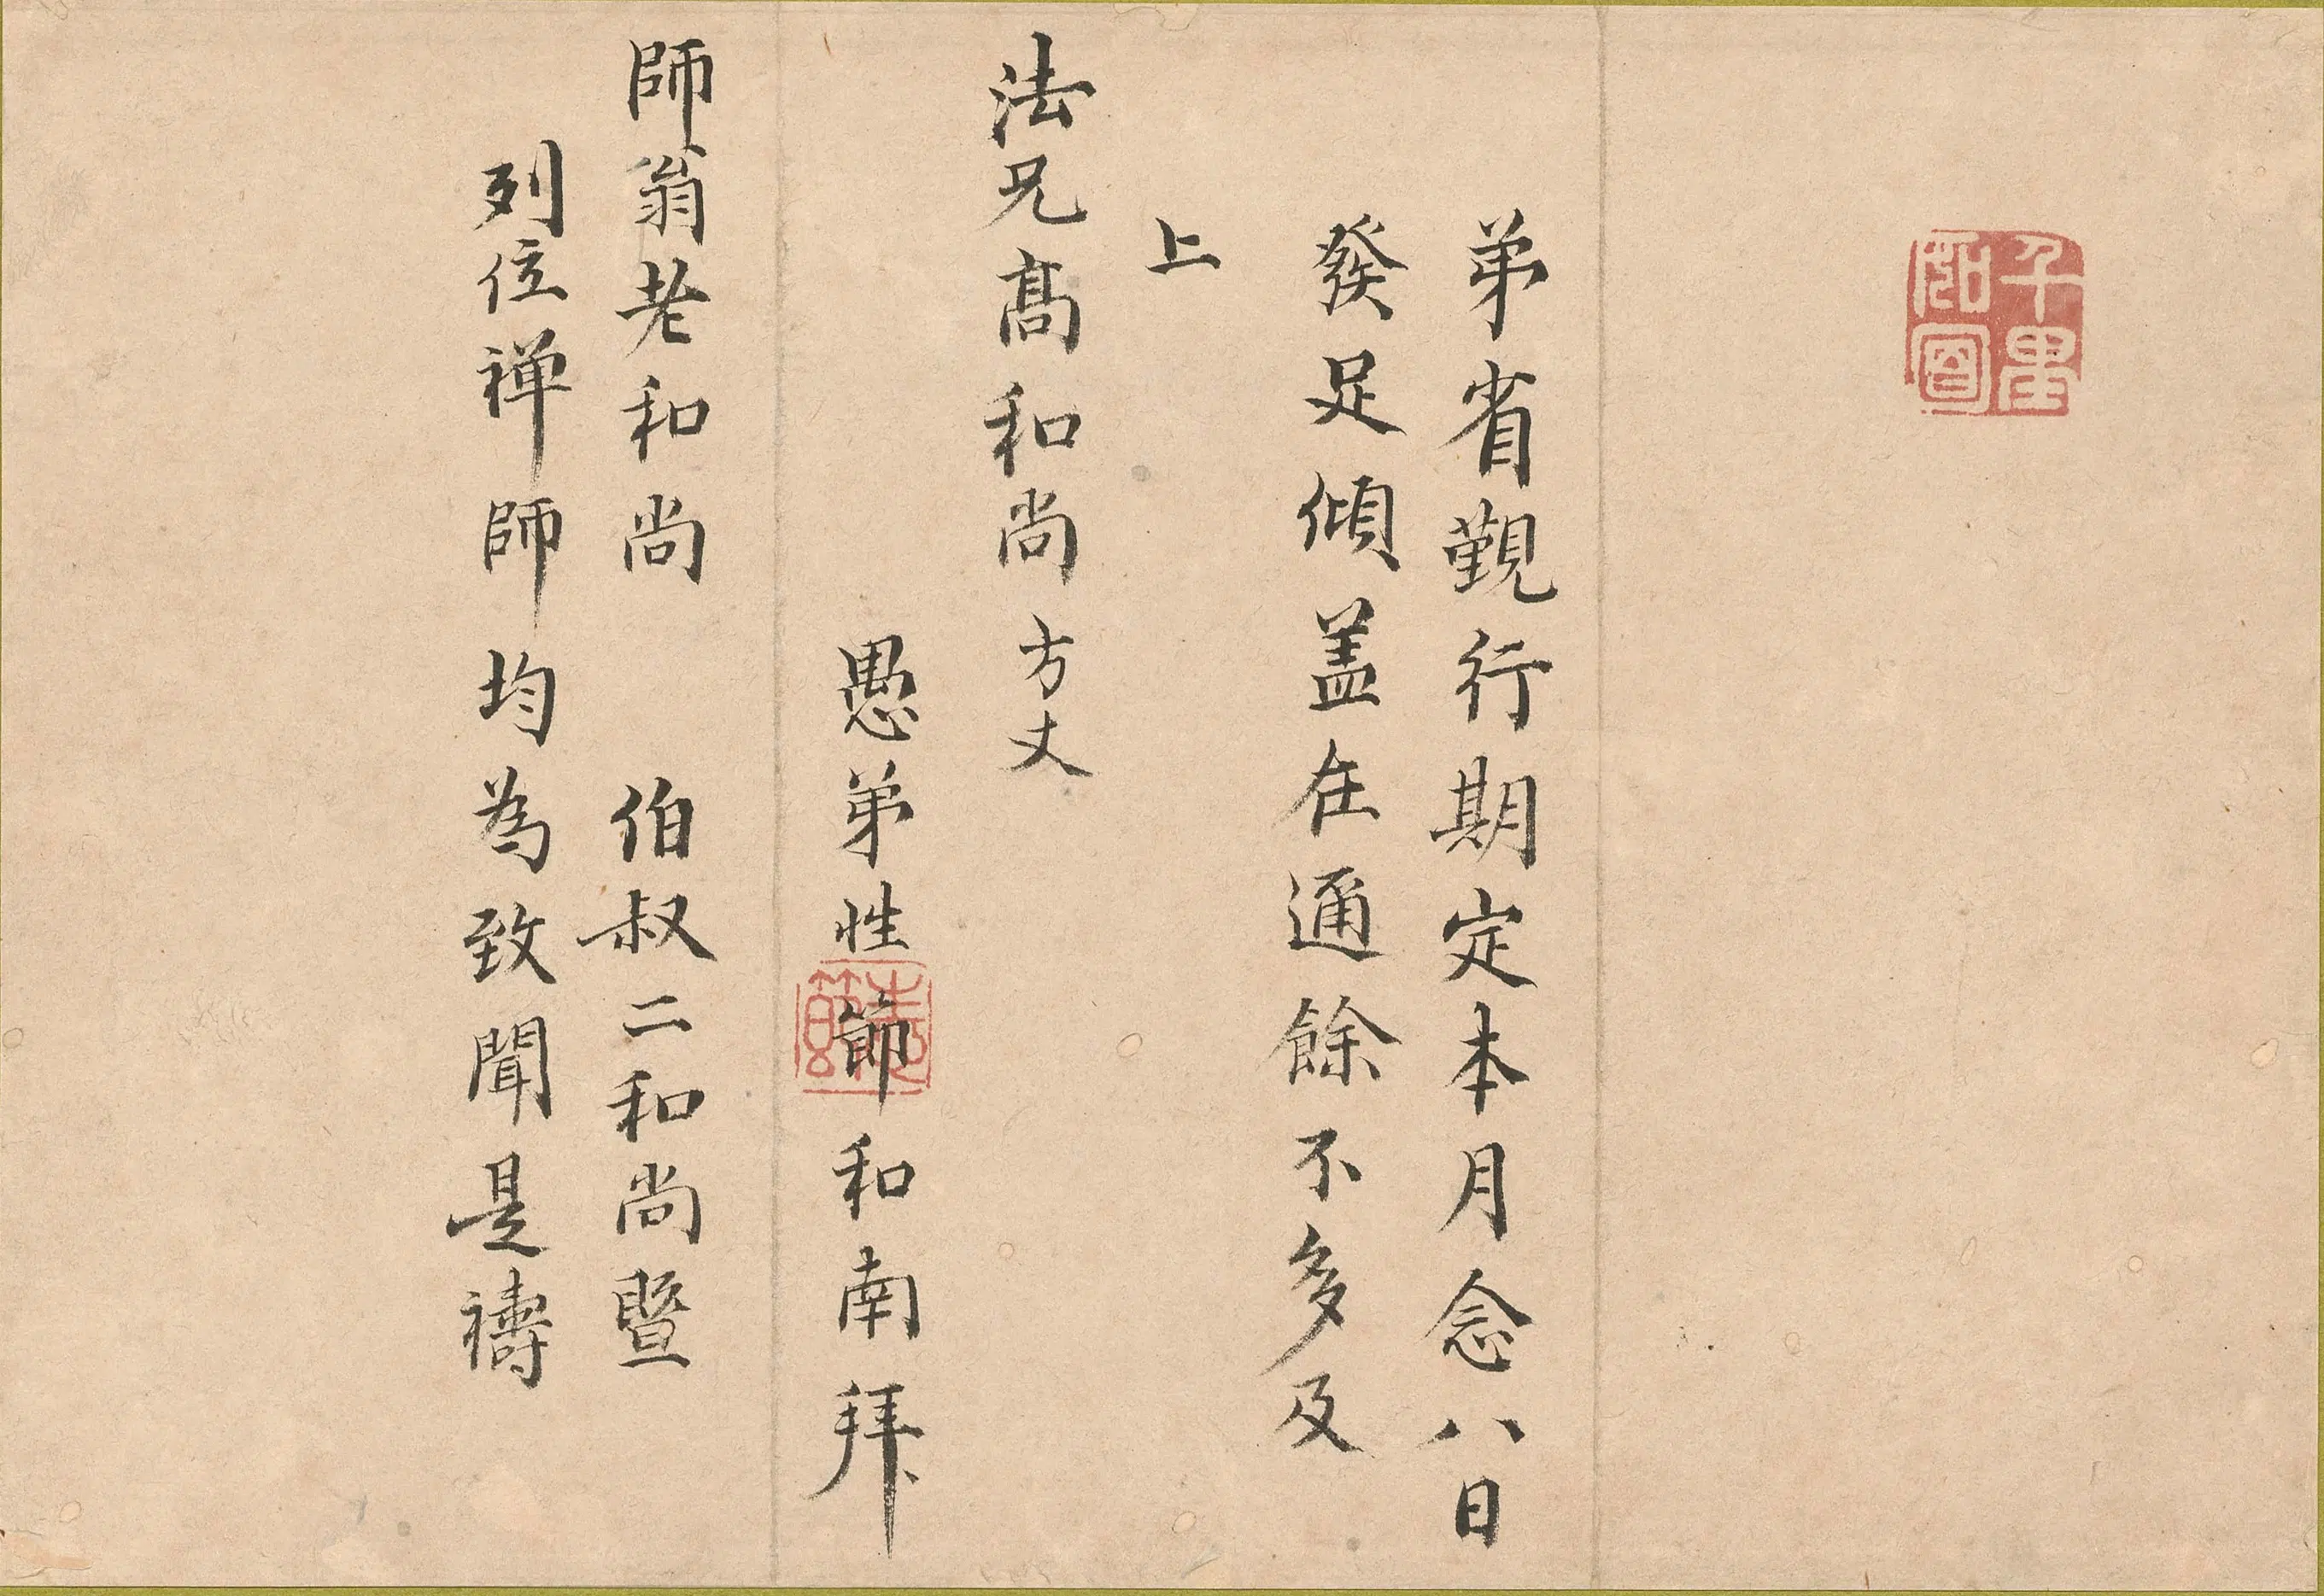 千里
面
弟省覲行期定本月念八日
發足傾盖在通餘不多及
上
法兄髙和尚方丈
愚弟性節和南拜
師翁老和尚 伯叔二和尚暨
列位禅師均為致聞是禱